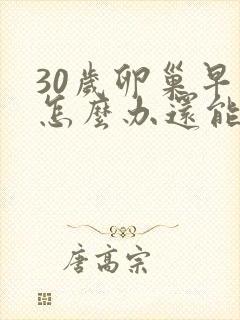 30歲卵巢早
怎麼办還能
唐高宗